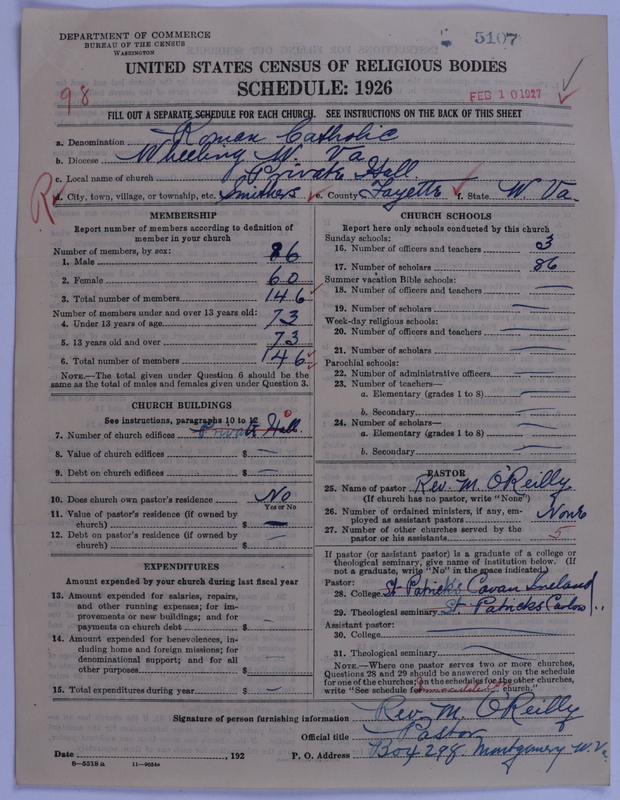 DEPARTMENT OF COMMERCE
BUREAU OF THE CENSUS
WASHINGTON
5107
UNITED STATES CENSUS OF RELIGIOUS BODIES
SCHEDULE: 1926
98
FEB 10 1927
FILL OUT A SEPARATE SCHEDULE FOR EACH CHURCH. SEE INSTRUCTIONS ON THE BACK OF THIS SHEET
a. Denomination Roman Catholic
b. Diocese Wheeling W. Va.
c. Local name of church Private Hall
R
d. City, town, village, or township, etc. Smithers e. County Fayette f. State W. Va.
MEMBERSHIP
Report number of members according to definition of
member in your church
Number of members, by sex:
1. Male 86
2. Female 60
3. Total number of members 146
Number of members under and over 13 years old:
4. Under 13 years of age 73
5. 13 years old and over 73
6. Total number of members 146
NOTE.—The total given under Question 6 should be the
same as the total of males and females given under Question 3.
CHURCH BUILDINGS
See instructions, paragraphs 10 to 12
7. Number of church edifices Private Hall 0
8. Value of church edifices $ —
9. Debt on church edifices $ —
10. Does church own pastor's residence No
Yes or No
11. Value of pastor's residence (if owned by
church) $ —
12. Debt on pastor's residence (if owned by
church) $ —
EXPENDITURES
Amount expended by your church during last fiscal year
13. Amount expended for salaries, repairs,
and other running expenses; for im-
provements or new buildings; and for
payments on church debt $ —
14. Amount expended for benevolences, in-
cluding home and foreign missions; for
denominational support; and for all
other purposes $ —
15. Total expenditures during year $ —
CHURCH SCHOOLS
Report here only schools conducted by this church
Sunday schools:
16. Number of officers and teachers 3
17. Number of scholars 86
Summer vacation Bible schools:
18. Number of officers and teachers —
19. Number of scholars —
Week-day religious schools:
20. Number of officers and teachers —
21. Number of scholars —
Parochial schools:
22. Number of administrative officers —
23. Number of teachers—
a. Elementary (grades 1 to 8) —
b. Secondary —
24. Number of scholars—
a. Elementary (grades 1 to 8) —
b. Secondary —
PASTOR
25. Name of pastor Rev. M. O'Reilly
(If church has no pastor, write "None")
26. Number of ordained ministers, if any, em-
ployed as assistant pastors None
27. Number of other churches served by the
pastor or his assistants 5
If pastor (or assistant pastor) is a graduate of a college or
theological seminary, give name of institution below. (If
not a graduate, write "No" in the space indicated.)
Pastor:
28. College St. Patrick's Cavan Ireland
29. Theological seminary St. Patricks Carlow
Assistant pastor:
30. College —
31. Theological seminary —
NOTE.—Where one pastor serves two or more churches,
Questions 28 and 29 should be answered only on the schedule
for one of the churches; on the schedules for the other churches,
write "See schedule for Immaculate church."
Signature of person furnishing information Rev. M. O'Reilly
Official title Pastor
Date , 192 P. O. Address Box 298 Montgomery W. Va.
8-5518 a 11-9654a